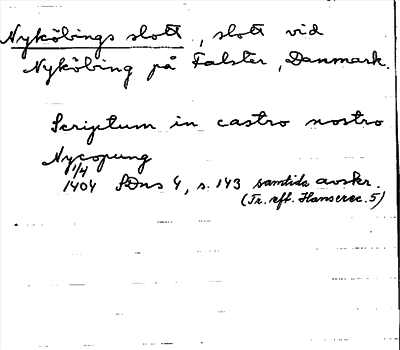 Nyköbings slott, slott vid
Nyköbing på Falster, Danmark.
Scriptum in castro nostro
Nycopung
1/4
1404 SDns 4, s. 143 samtida avskr.
(Tr. eft. Hanserec. 5)